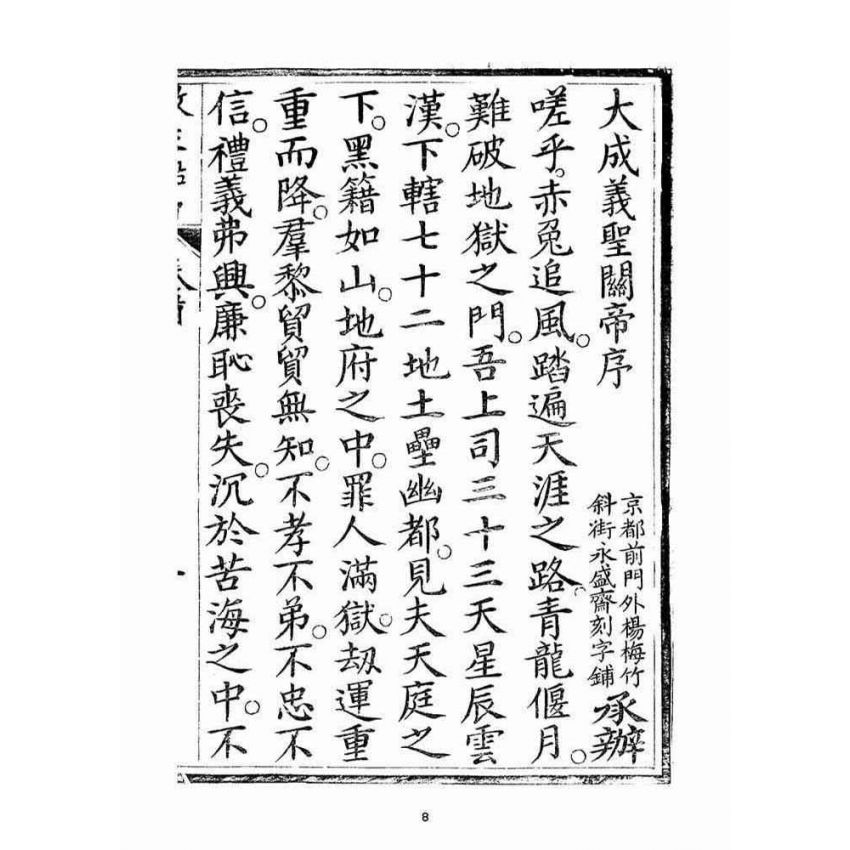 大成義聖關帝序
京都前門外楊梅竹
斜街永盛齋刻字鋪
承辦
嗟乎。赤兔追風。踏遍天涯之路。青龍偃月。
難破地獄之門。吾上司三十三天星辰雲
漢。下轄七十二地土壘幽都。見夫天庭之
下。黑籍如山。地府之中。罪人滿獄。劫運重
重而降。羣黎貿貿無知。不孝不弟。不忠不
信。禮義弗興。廉恥喪失。沉於苦海之中。不
8